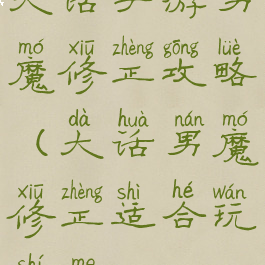 大话手游男
mó xiū zhèng gōng lüè
魔修正攻略
dà huà nán mó
（大话男魔
xiū zhèng shì hé wán
修正适合玩
shí me